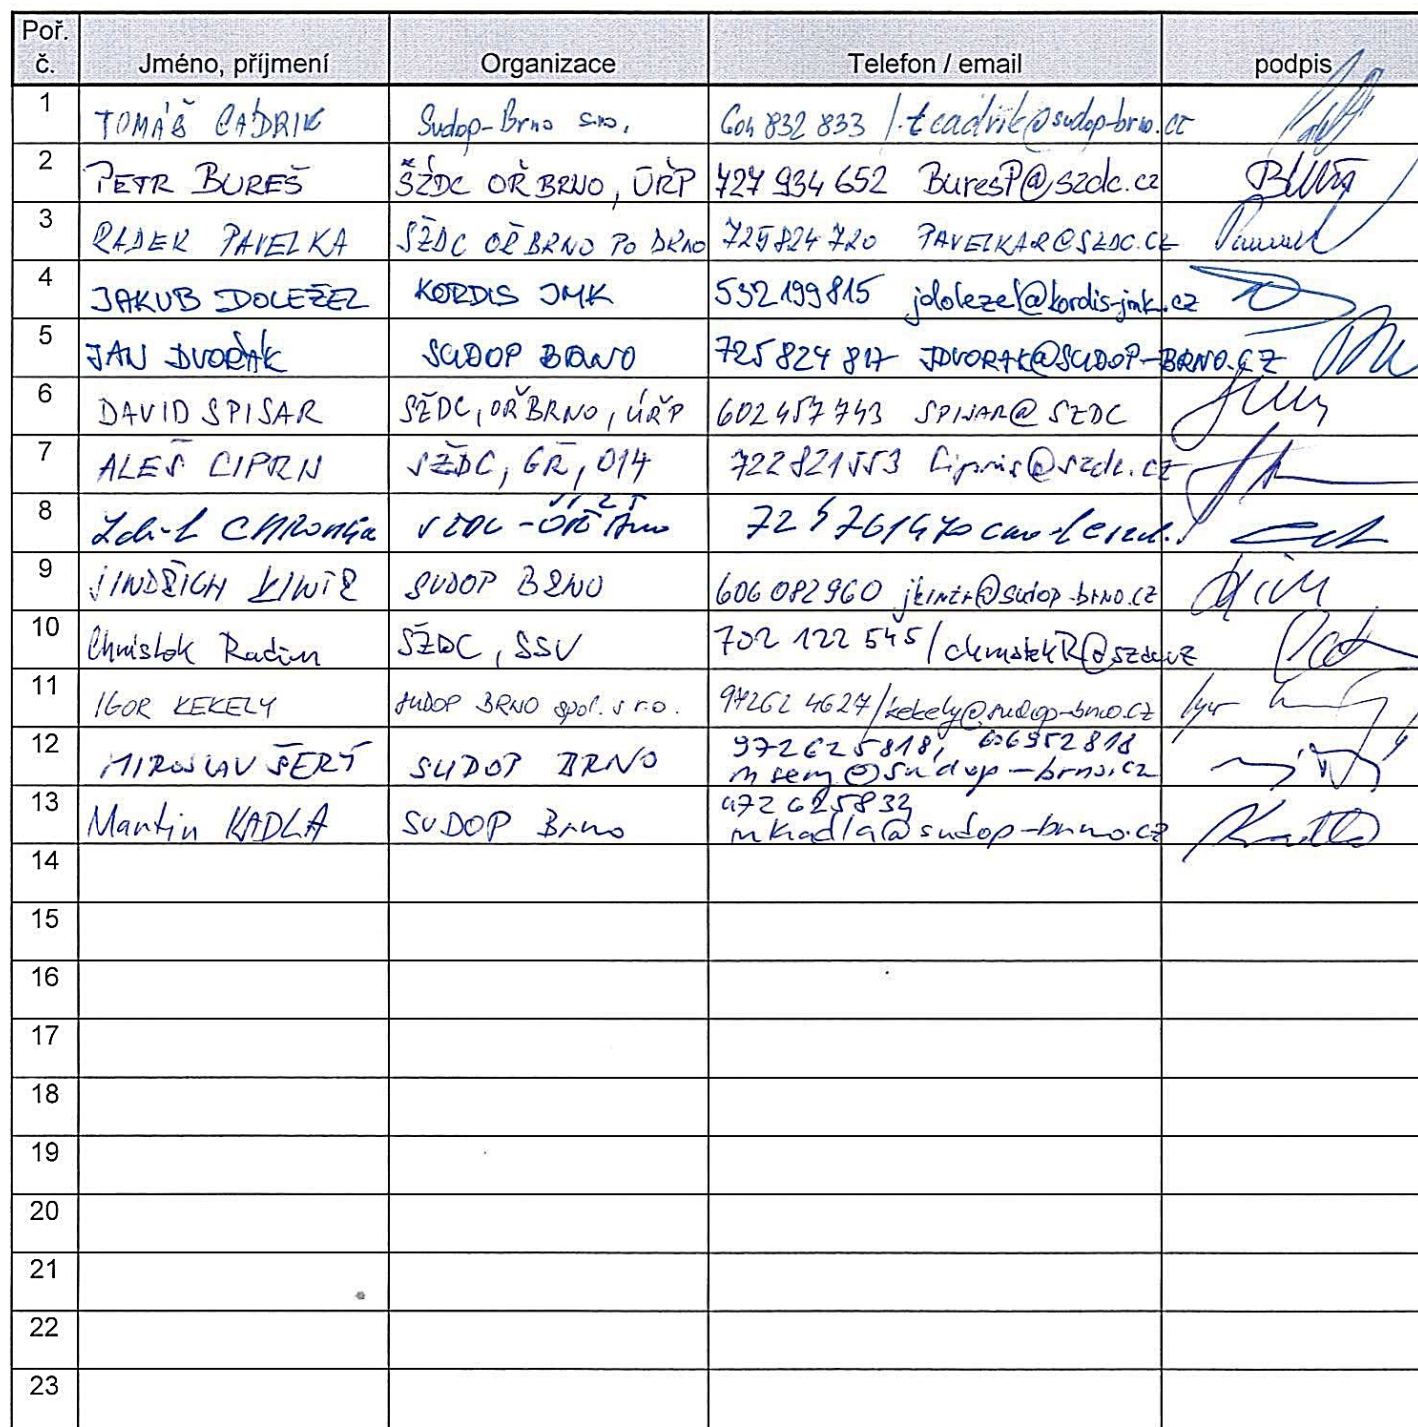 Poř. č. Jméno, příjmení Organizace Telefon / email podpis
1 TOMÁŠ CADRIK Sudop-Brno s.r.o. 604 832 833 / tcadrik@sudop-brno.cz
2 PETR BUREŠ SŽDC OŘ BRNO, ÚŘP 727 934 652 BuresP@szdc.cz
3 RADEK PAVELKA SŽDC OŘ BRNO PO BRNO 725 824 720 PAVELKAR@SZDC.CZ
4 JAKUB DOLEŽEL KORDIS JMK 532 199 815 jdolezel@kordis-jmk.cz
5 JAN DVOŘÁK SUDOP BRNO 725 824 817 JDVORAK@SUDOP-BRNO.CZ
6 DAVID SPISAR SŽDC, OŘ BRNO, ÚŘP 602 457 743 SPISAR@SZDC
7 ALEŠ SŽDC, GŘ, O14 722 821 553
8
9 JINDŘICH KINTR SUDOP BRNO 606 082 960 jkintr@sudop-brno.cz
10 Radim SŽDC, SSV 702 122 545 /
11 IGOR KEKELY SUDOP BRNO spol. s r.o. 97262 4627/kekely@sudop-brno.cz Igor
12 MIROSLAV ŠERÝ SUDOP BRNO 972625818, 606952818
msery@sudop-brno.cz
13 Martin KADLA SUDOP Brno 972 625832
mkadla@sudop-brno.cz
14
15
16
17
18
19
20
21
22
23